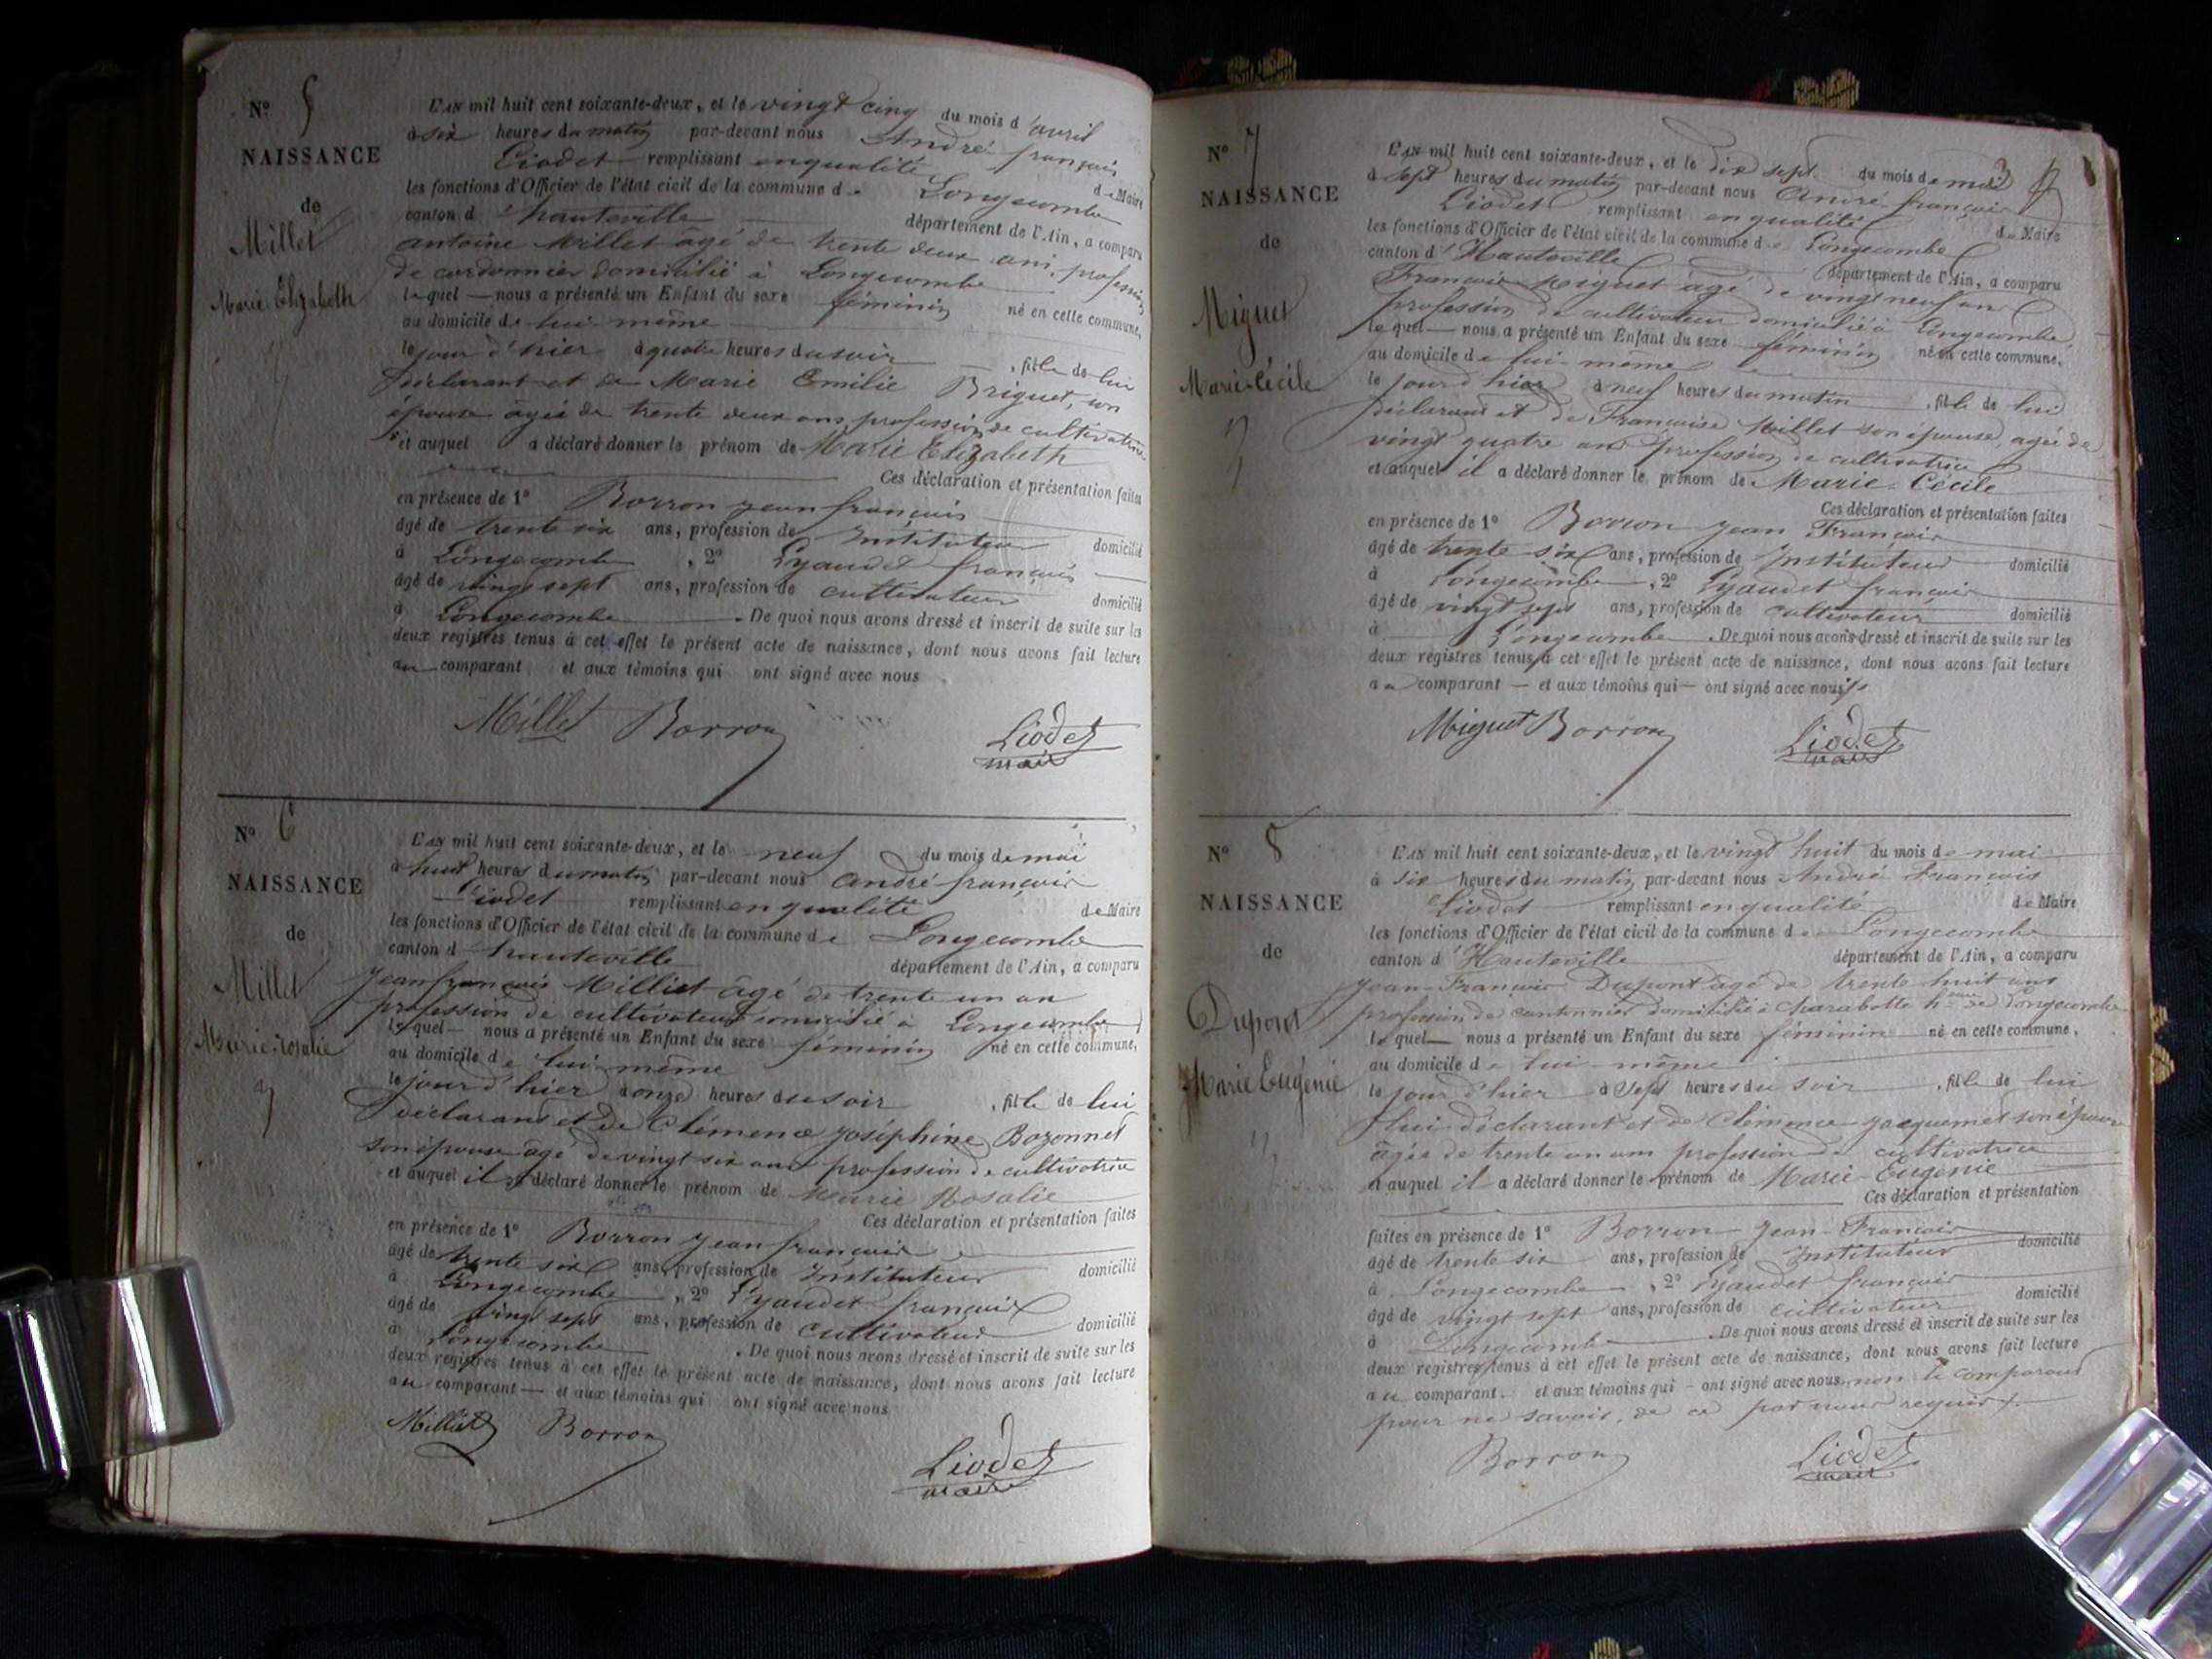 Nº 5
NAISSANCE
de
Millet
Marie Elizabeth
L'AN mil huit cent soixante-deux, et le vingt cinq du mois d'avril
à six heures du matin par-devant nous André françois
Liodet remplissant en qualité de Maire
les fonctions d'Officier de l'état civil de la commune de Longecombe
canton d'hauteville département de l'Ain, a comparu
antoine Millet âgé de trente deux ans, profession
de cordonnier domicilié à Longecombe
lequel nous a présenté un Enfant du sexe féminin né en cette commune,
au domicile de lui même
le jour d'hier à quatre heures du soir, fille de lui
déclarant et de Marie Emilie Briguet, son
épouse âgée de trente deux ans profession de cultivatrice
et auquel a déclaré donner le prénom de Marie Elizabeth
Ces déclaration et présentation faites
en présence de 1º Borron jean françois
âgé de trente six ans, profession de Instituteur domicilié
à Longecombe, 2º Lyaudet françois
âgé de vingt sept ans, profession de cultivateur domicilié
à Longecombe. De quoi nous avons dressé et inscrit de suite sur les
deux registres tenus à cet effet le présent acte de naissance, dont nous avons fait lecture
au comparant et aux témoins qui ont signé avec nous
Millet Borron Liodet
maire
Nº 6
NAISSANCE
de
Millet
Marie-rosalie
L'AN mil huit cent soixante-deux, et le neuf du mois de mai
à huit heures du matin par-devant nous andré françois
Liodet remplissant en qualité de Maire
les fonctions d'Officier de l'état civil de la commune de Longecombe
canton d'hauteville département de l'Ain, a comparu
jean françois Milliet âgé de trente un an
profession de cultivateur domicilié à Longecombe
lequel nous a présenté un Enfant du sexe féminin né en cette commune,
au domicile de lui même
le jour d'hier à onze heures du soir, fille de lui
déclarant et de Clémence joséphine Bozonnet
son épouse âgé de vingt six ans profession de cultivatrice
et auquel il a déclaré donner le prénom de Marie Rosalie
Ces déclaration et présentation faites
en présence de 1º Borron jean françois
âgé de trente six ans, profession de Instituteur domicilié
à Longecombe, 2º Lyaudet françois
âgé de vingt sept ans, profession de cultivateur domicilié
à Longecombe. De quoi nous avons dressé et inscrit de suite sur les
deux registres tenus à cet effet le présent acte de naissance, dont nous avons fait lecture
au comparant et aux témoins qui ont signé avec nous
Milliet Borron
Liodet
maire
Nº 7
NAISSANCE
de
Miguet
Marie-Cécile
L'AN mil huit cent soixante-deux, et le dix sept du mois de mai 3
à sept heures du matin par-devant nous André françois
Liodet remplissant en qualité de Maire
les fonctions d'Officier de l'état civil de la commune de Longecombe
canton d'Hauteville département de l'Ain, a comparu
François Miguet âgé de vingt neuf an
profession de cultivateur domicilié à Longecombe
lequel nous a présenté un Enfant du sexe féminin né en cette commune.
au domicile de lui même
le jour d'hier à neuf heures du matin, fille de lui
déclarant et de Françoise Millet son épouse, agée de
vingt quatre ans profession de cultivatrice
et auquel il a déclaré donner le prénom de Marie-Cécile
Ces déclaration et présentation faites
en présence de 1º Borron jean François
âgé de trente six ans, profession de Instituteur domicilié
à Longecombe, 2º Lyaudet françois
âgé de vingt sept ans, profession de cultivateur domicilié
à Longecombe. De quoi nous avons dressé et inscrit de suite sur les
deux registres tenus à cet effet le présent acte de naissance, dont nous avons fait lecture
au comparant et aux témoins qui ont signé avec nous
Miguet Borron Liodet
maire
Nº 8
NAISSANCE
de
Dupont
Marie Eugénie
L'AN mil huit cent soixante-deux, et le vingt huit du mois de mai
à six heures du matin par-devant nous André François
Liodet remplissant en qualité de Maire
les fonctions d'Officier de l'état civil de la commune de Longecombe
canton d'Hauteville département de l'Ain, a comparu
jean-François Dupont âgé de trente huit ans
profession de cantonnier domicilié à Charabotte h.eau de Longecombe
lequel nous a présenté un Enfant du sexe féminin né en cette commune.
au domicile de lui même
le jour d'hier à sept heures du soir, fille de lui
lui déclarant et de Clémence jacquemet son épouse
âgée de trente un ans profession de cultivatrice
et auquel il a déclaré donner le prénom de Marie-Eugenie
Ces déclaration et présentation
faites en présence de 1º Borron Jean-François
âgé de trente six ans, profession de Instituteur domicilié
à Longecombe, 2º Lyaudet françois
âgé de vingt sept ans, profession de cultivateur domicilié
à Longecombe. De quoi nous avons dressé et inscrit de suite sur les
deux registres tenus à cet effet le présent acte de naissance, dont nous avons fait lecture
au comparant et aux témoins qui ont signé avec nous non le comparant
pour ne savoir, de ce par nous requis
Borron Liodet
maire